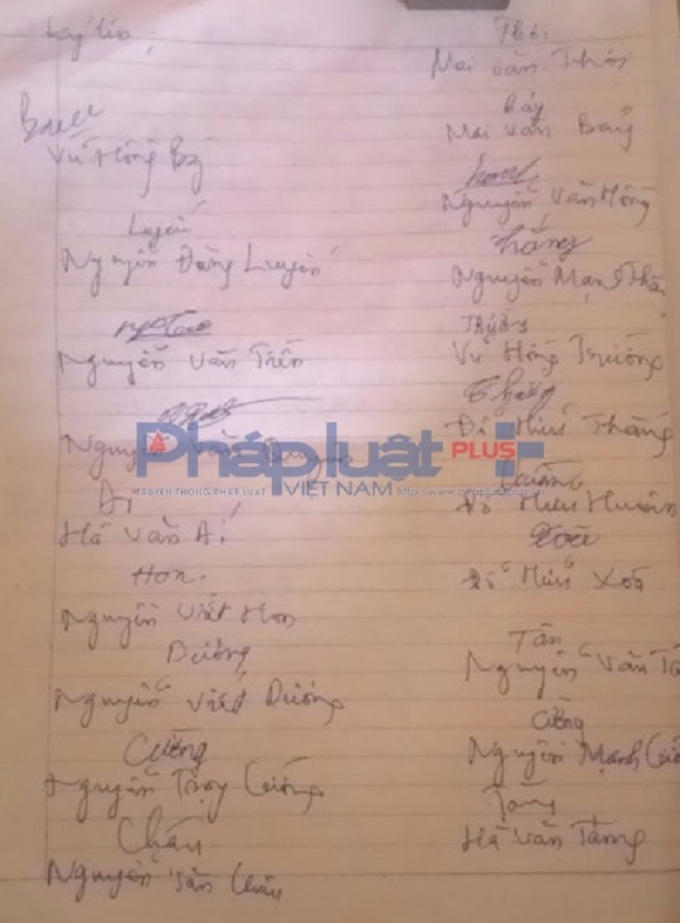 Ký tên
Vũ Hồng Bảy
Luyến
Nguyễn Đăng Luyến
Nguyễn Văn Tiến
Nguyễn Văn
Ai
Hà Văn Ai
Hơn
Nguyễn Viết Hơn
Dưỡng
Nguyễn Viết Dưỡng
Cường
Nguyễn Trọng Cường
Châu
Nguyễn Văn Châu
Thới
Mai Văn Thới
Bảy
Mai Văn Bảy
Nguyễn Văn Hồng
Thắng
Nguyễn Mạnh
Trường
Vũ Hồng Trường
Thắng
Đỗ Hữu Thắng
Đỗ Hữu
Xoa
Đỗ Hữu Xoa
Tân
Nguyễn Văn
Cường
Nguyễn Mạnh
Tăng
Hà Văn Tăng
Pháp luật PLUS
TRUYỀN THÔNG PHÁP LUẬT VIỆT NAM http://www.phapluatplus.vn